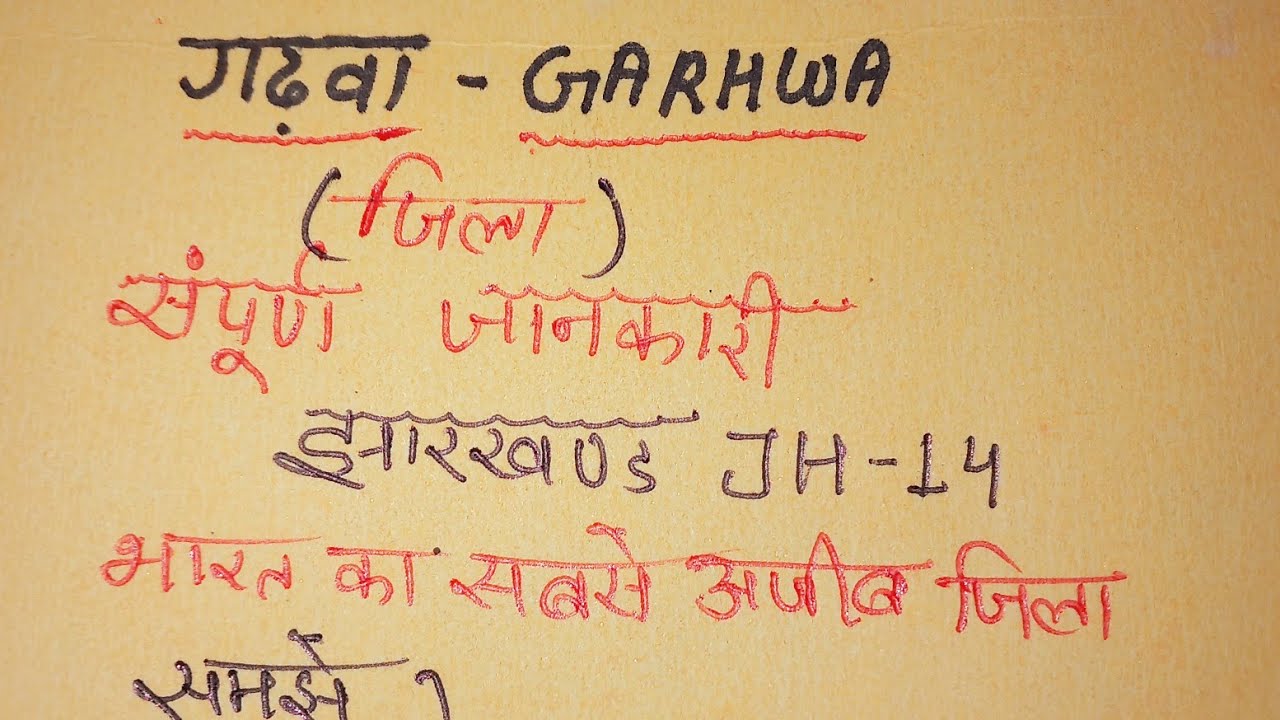 गढ़वा - GARHWA
(जिला)
संपूर्ण जानकारी
झारखण्ड JH-14
भारत का सबसे अजीब जिला
समझे